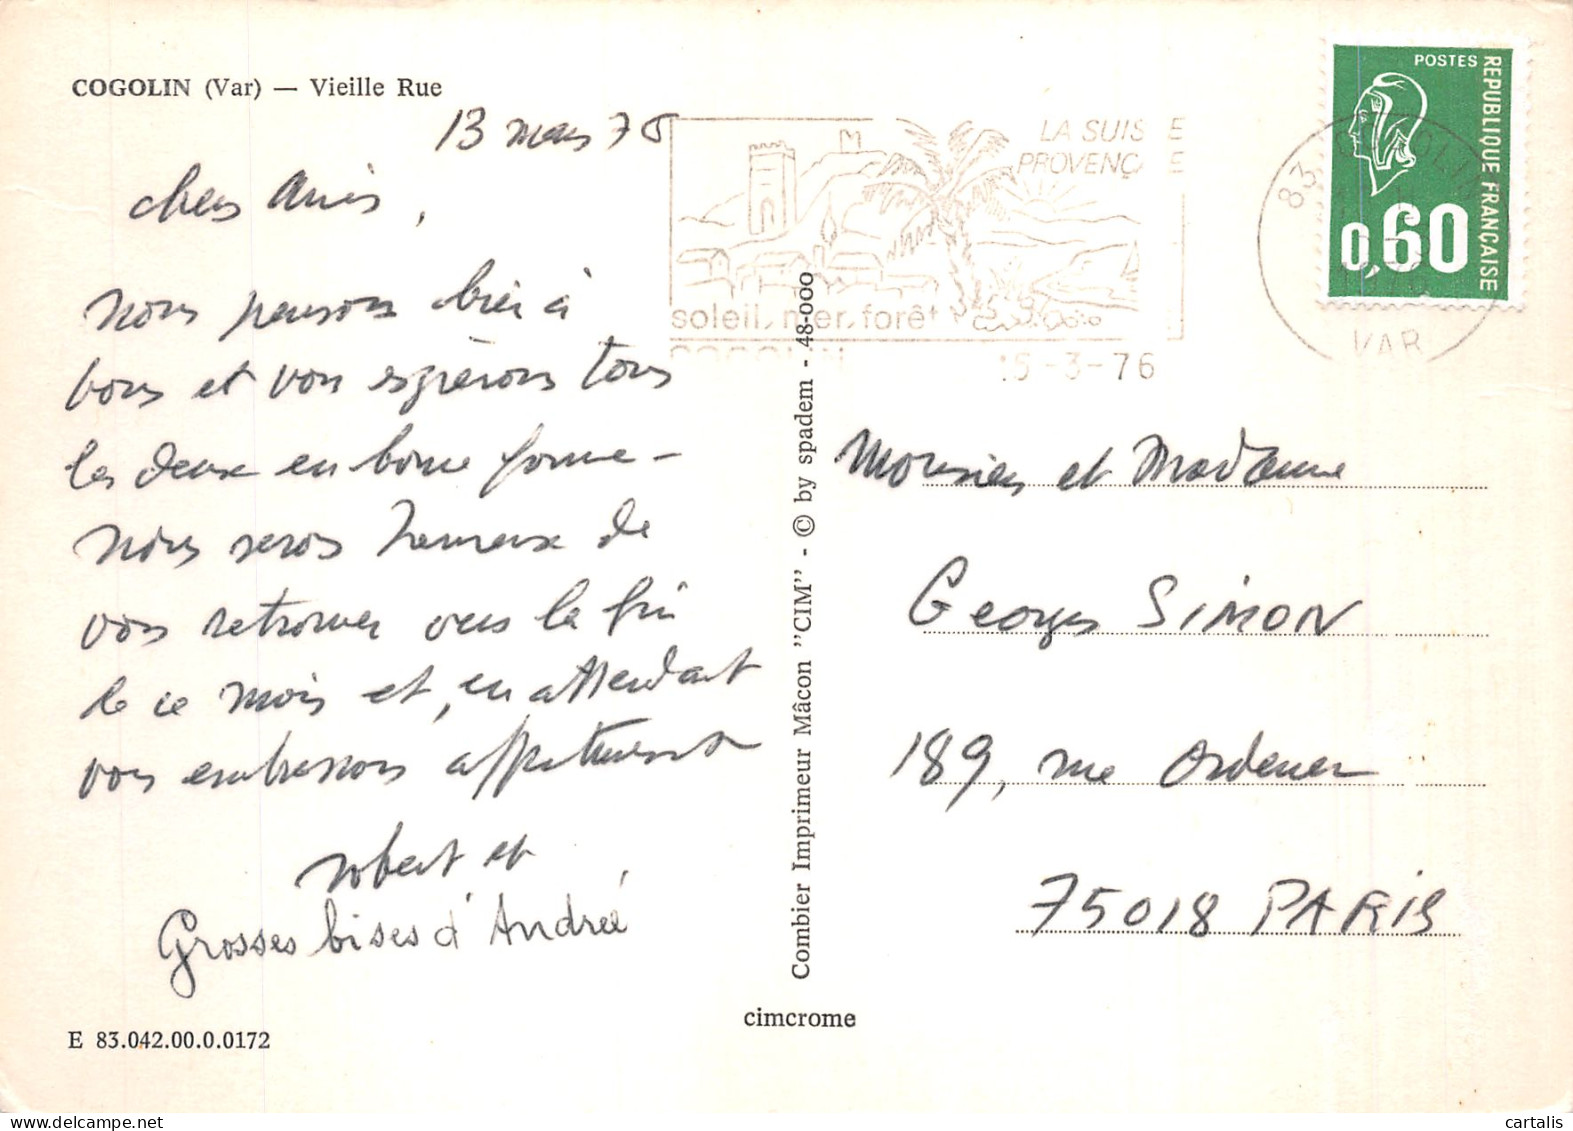 COGOLIN (Var) — Vieille Rue
13 mars 76
chers Amis,
nous pensons bien à
vous et vous espérons tous
les deux en bonne forme –
Nous serons heureux de
vous retrouver vers la fin
de ce mois et, en attendant
vous embrassons affectueusement
Robert et
Grosses bises d'Andrée
E 83.042.00.0.0172
LA SUISSE
PROVENÇALE
soleil, mer, forêt
COGOLIN
15-3-76
83 COGOLIN
VAR
POSTES
REPUBLIQUE FRANÇAISE
0,60
Combier Imprimeur Mâcon "CIM" - © by spadem - 48-000
Monsieur et Madame
Georges SIMON
189, rue Ordener
75018 PARIS
cimcrome
cartalis